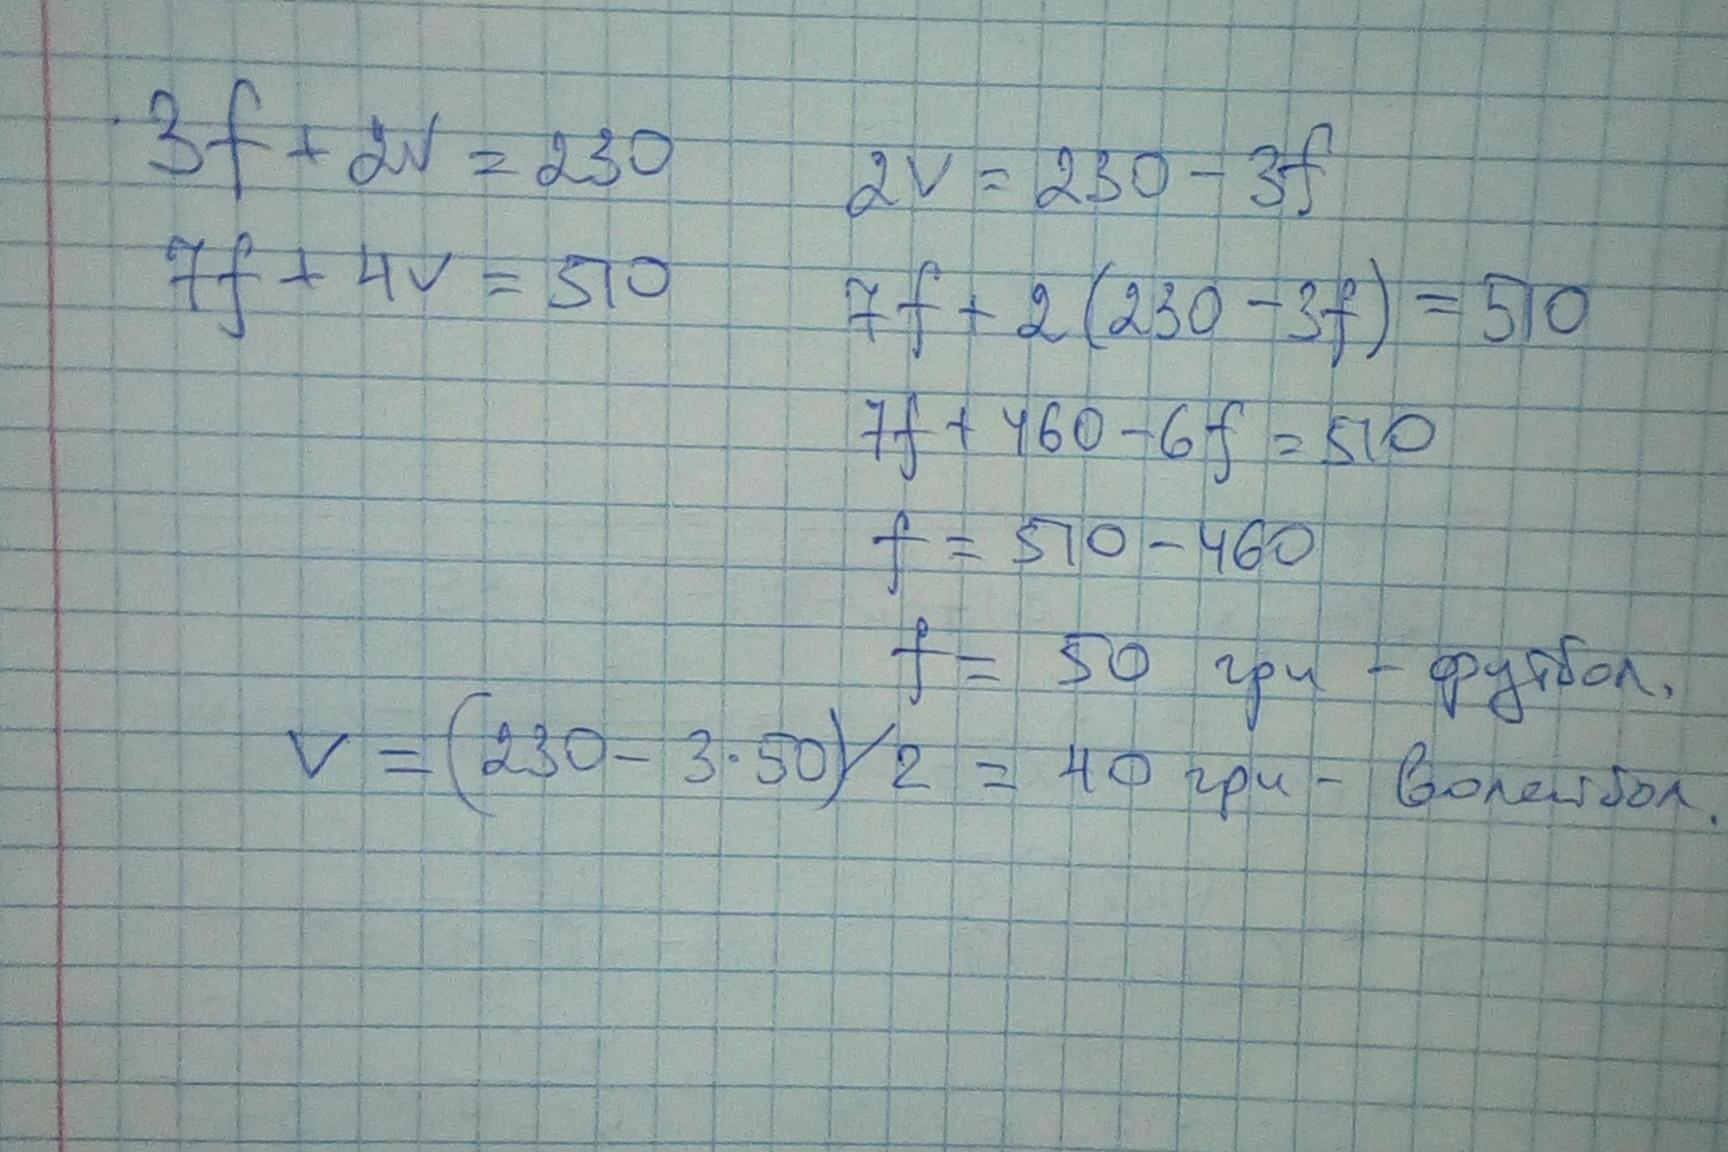 3f + 2v = 230
7f + 4v = 510
2v = 230 - 3f
7f + 2(230 - 3f) = 510
7f + 460 - 6f = 510
f = 510 - 460
f = 50 грн - футбол.
v = (230 - 3·50)/2 = 40 грн - волейбол.